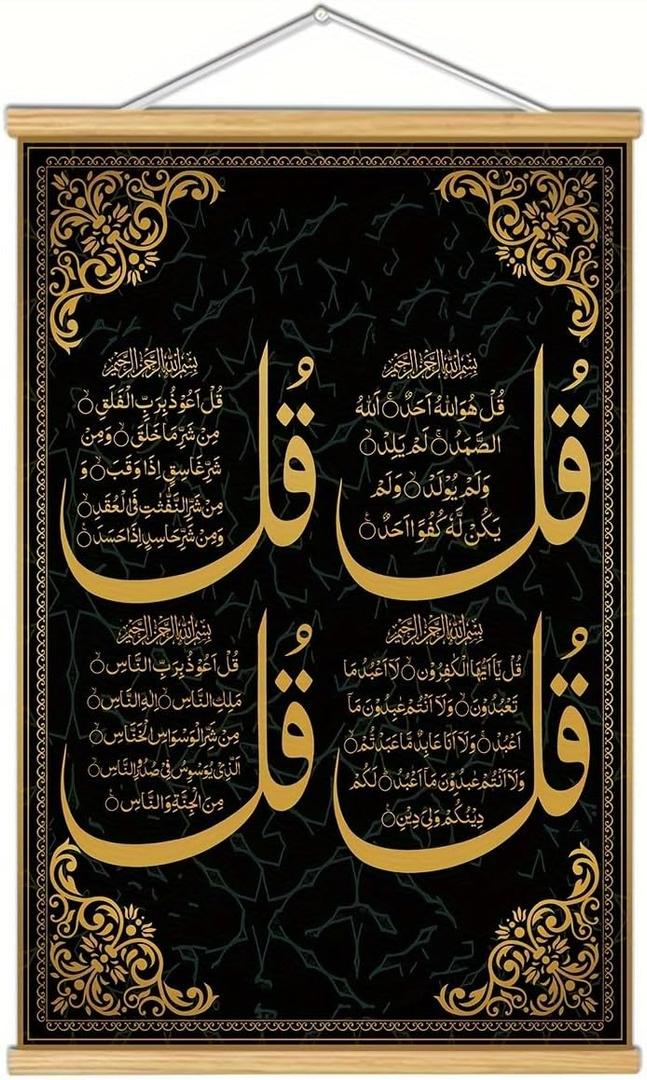 بسم الله الرحمن الرحيم
قُلْ هُوَ اللهُ اَحَدٌ ۝ اَللهُ
الصَّمَدُ ۝ لَمْ يَلِدْ ۝
وَلَمْ يُوْلَدْ ۝ وَلَمْ
يَكُنْ لَّهٗ كُفُوًا اَحَدٌ ۝
قُل
بسم الله الرحمن الرحيم
قُلْ اَعُوْذُ بِرَبِّ الْفَلَقِ ۝
مِنْ شَرِّ مَا خَلَقَ ۝ وَمِنْ
شَرِّ غَاسِقٍ اِذَا وَقَبَ ۝ وَ
مِنْ شَرِّ النَّفّٰثٰتِ فِى الْعُقَدِ ۝
وَمِنْ شَرِّ حَاسِدٍ اِذَا حَسَدَ ۝
قُل
بسم الله الرحمن الرحيم
قُلْ يٰٓاَيُّهَا الْكٰفِرُوْنَ ۝ لَا اَعْبُدُ مَا
تَعْبُدُوْنَ ۝ وَلَآ اَنْتُمْ عٰبِدُوْنَ مَآ
اَعْبُدُ ۝ وَلَآ اَنَا عَابِدٌ مَّا عَبَدْتُّمْ ۝
وَلَآ اَنْتُمْ عٰبِدُوْنَ مَآ اَعْبُدُ ۝ لَكُمْ
دِيْنُكُمْ وَلِىَ دِيْنِ ۝
قُل
بسم الله الرحمن الرحيم
قُلْ اَعُوْذُ بِرَبِّ النَّاسِ ۝
مَلِكِ النَّاسِ ۝ اِلٰهِ النَّاسِ ۝
مِنْ شَرِّ الْوَسْوَاسِ الْخَنَّاسِ ۝
الَّذِىْ يُوَسْوِسُ فِىْ صُدُوْرِ النَّاسِ ۝
مِنَ الْجِنَّةِ وَالنَّاسِ ۝
قُل